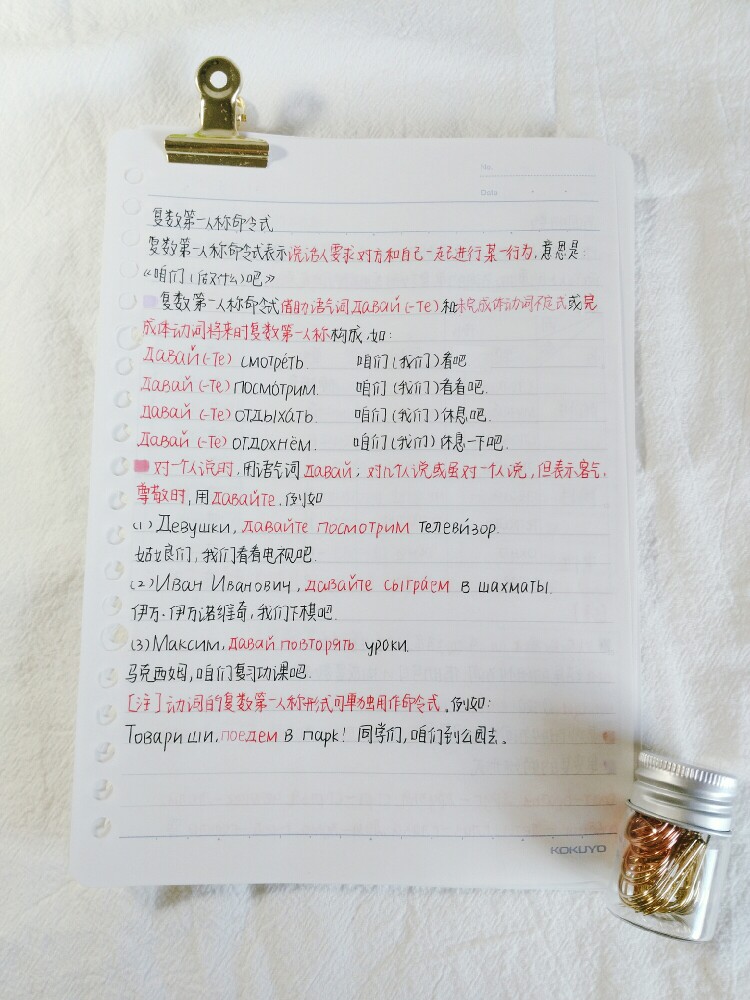 No.
Date
复数第一人称命令式
复数第一人称命令式表示说话人要求对方和自己一起进行某一行为,意思是:
《咱们(做什么)吧》
复数第一人称命令式借助语气词давай(-те)和未完成体动词不定式或完
成体动词将来时复数第一人称构成,如:
Давай(-те) смотре́ть. 咱们(我们)看吧
Давай(-те) посмо́трим. 咱们(我们)看看吧.
Давай(-те) отдыха́ть. 咱们(我们)休息吧.
Давай(-те) отдохнём. 咱们(我们)休息一下吧.
对一个人说时,用语气词давай;对几个人说或虽对一个人说,但表示客气、
尊敬时,用давайте.例如
(1) Девушки, давайте посмотрим телеви́зор.
姑娘们,我们看看电视吧.
(2) Иван Иванович, давайте сыгра́ем в шахматы.
伊万·伊万诺维奇,我们下棋吧.
(3) Максим, давай повторять уроки.
马克西姆,咱们复习功课吧.
[注]动词的复数第一人称形式可单独用作命令式.例如:
Товариши, поедем в парк! 同学们,咱们到公园去。
KOKUYO